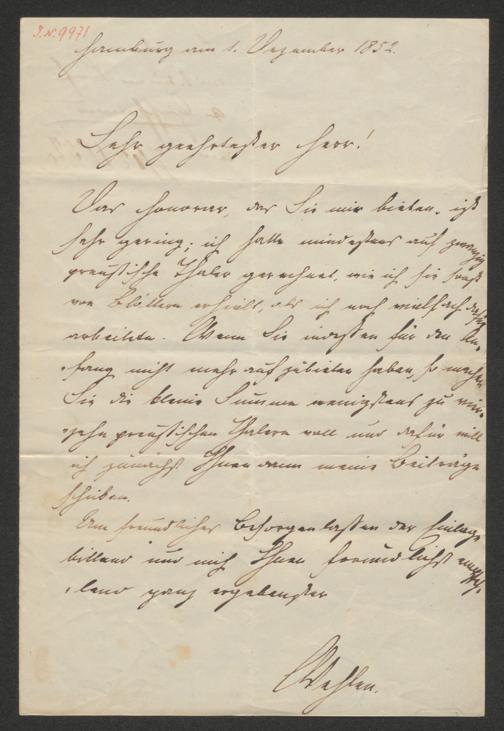 J.N. 9971
Hamburg am 1. Dezember 1852.
Sehr geehrtester Herr!
Das Honorar, das Sie mir bieten, ist
sehr gering; ich hatte mindestens auf zwanzig
preußische Thaler gerechnet, wie ich sie sonst
von Blättern erhielt, als ich noch vielfach dafür
arbeitete. Wenn Sie indessen für den An-
fang nicht mehr aufzubieten haben, so machen
Sie die kleine Summe wenigstens zu vier-
zehn preußischen Thalern voll und dafür will
ich zunächst Ihnen dann meine Beiträge
schicken.
Um freundliches Besorgenlassen der Einlage
bittend und mich Ihnen freundlichst empfeh-
lend ganz ergebenster